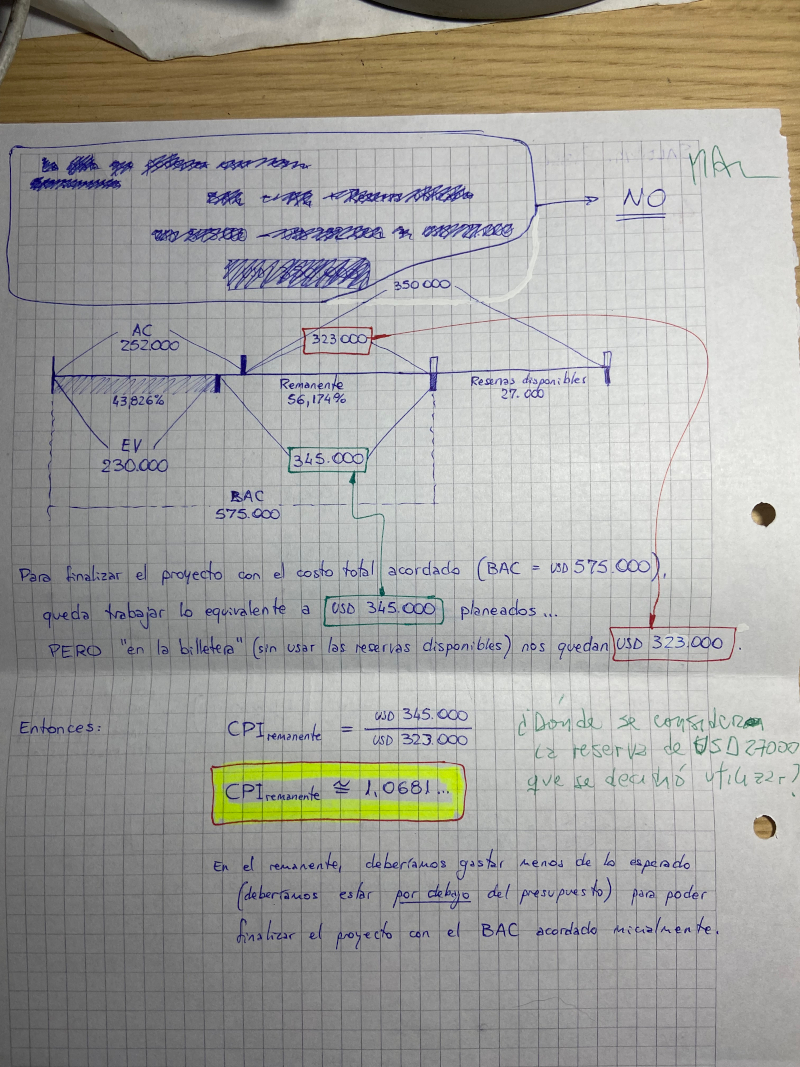 MAL
NO
350 000
AC
252.000
323.000
Remanente
56,174%
Reservas disponibles
27.000
43,826%
EV
230.000
345.000
BAC
575.000
Para finalizar el proyecto con el costo total acordado (BAC = USD 575.000),
queda trabajar lo equivalente a USD 345.000 planeados...
PERO "en la billetera" (sin usar las reservas disponibles) nos quedan USD 323.000.
Entonces:
CPI remanente = USD 345.000 / USD 323.000
¿Dónde se considera
la reserva de USD27000
que se decidió utilizar?
CPI remanente ≅ 1,0681...
En el remanente, deberíamos gastar menos de lo esperado
(deberíamos estar por debajo del presupuesto) para poder
finalizar el proyecto con el BAC acordado inicialmente.